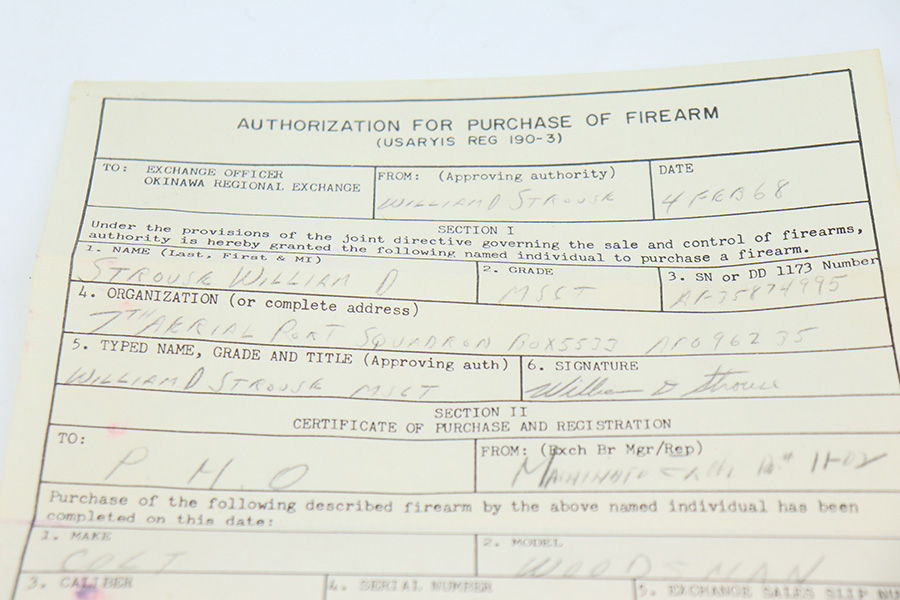 AUTHORIZATION FOR PURCHASE OF FIREARM
(USARYIS REG 190-3)
TO: EXCHANGE OFFICER
OKINAWA REGIONAL EXCHANGE
FROM: (Approving authority)
WILLIAM D STROUSE
DATE
4 FEB 68
SECTION I
Under the provisions of the joint directive governing the sale and control of firearms,
authority is hereby granted the following named individual to purchase a firearm.
1. NAME (Last, First & MI)
STROUSE WILLIAM D
2. GRADE
MSGT
3. SN or DD 1173 Number
AF35874995
4. ORGANIZATION (or complete address)
7TH AERIAL PORT SQUADRON BOX 5533 APO 96235
5. TYPED NAME, GRADE AND TITLE (Approving auth)
WILLIAM D STROUSE MSGT
6. SIGNATURE
William D Strouse
SECTION II
CERTIFICATE OF PURCHASE AND REGISTRATION
TO:
P M O
FROM: (Exch Br Mgr/Rep)
MACHINATO 11-02
Purchase of the following described firearm by the above named individual has been
completed on this date:
1. MAKE
COLT
2. MODEL
WOODSMAN
3. CALIBER
4. SERIAL NUMBER
5. EXCHANGE SALES SLIP